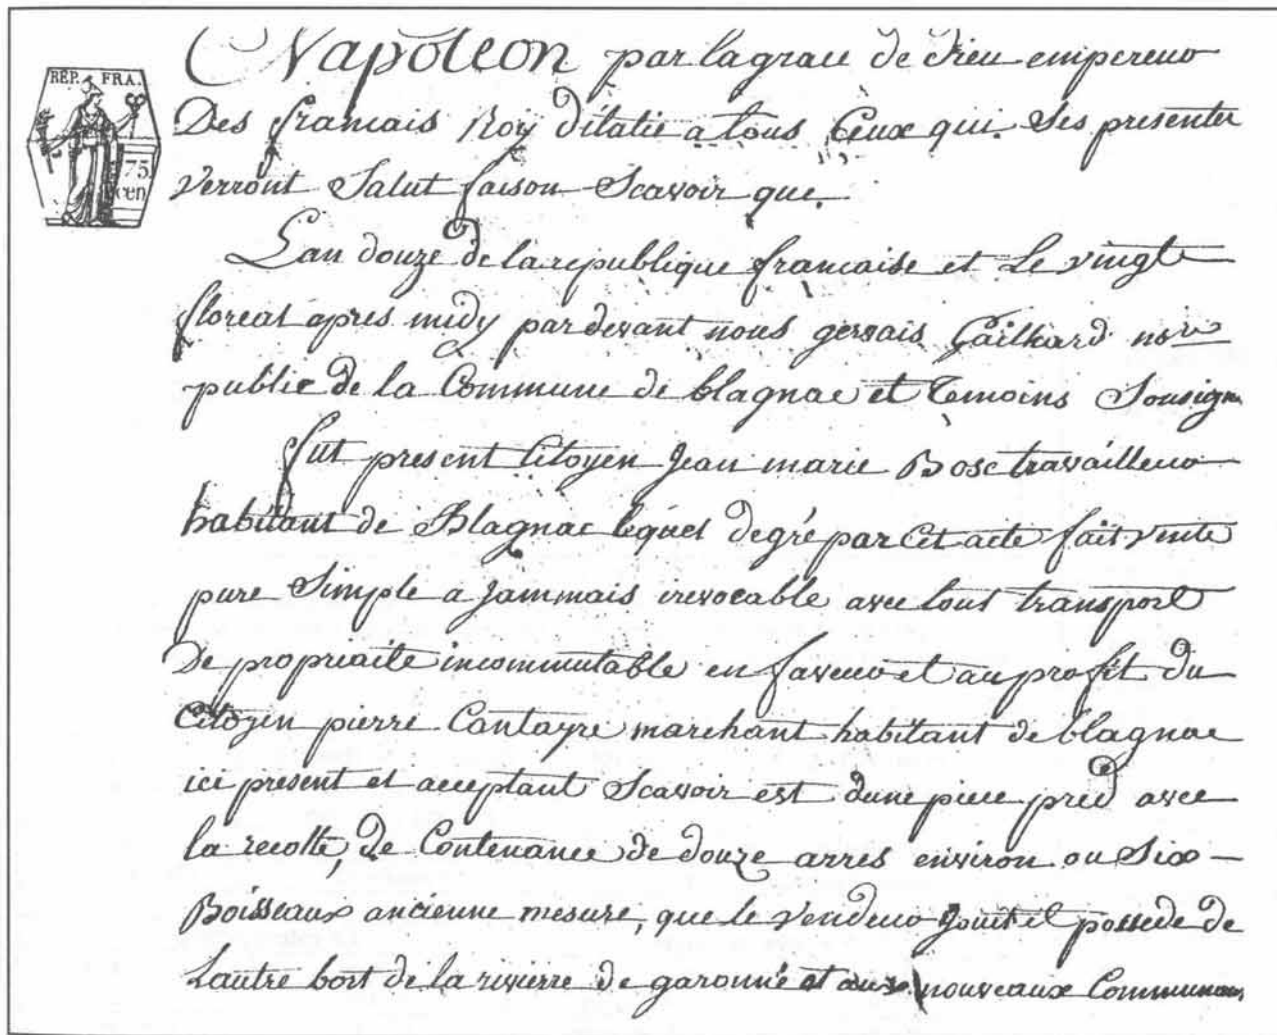 Napoleon par la grace de dieu empereur
REP. FRA.
75
cen
Des francais Roy ditalie a tous Ceux qui Ses presenter
Verront Salut faison Scavoir que.
Lan douze de la republique francaise et Le vingt
floreal apres midy par devant nous gervais Cailhard nore
public de la Commune de blagnac et Temoins Sousigne
fut present Citoyen Jean marie Bosc travailleur
habitant de Blagnac lequel degré par cet acte fait vente
pure Simple a Jammais irevocable avec tout transport
De propriaité incommutable en faveur et au profit du
Citoyen pierre Cantayre marchant habitant de blagnac
ici present et acceptant Scavoir est dune piece pred avec
la recolte, de Contenance de douze arres environ ou Six –
Boisseaux ancienne mesure, que le Vendeur Jouit et possede de
Lautre bort de la rivierre de garonne et aux nouveaux Communaux